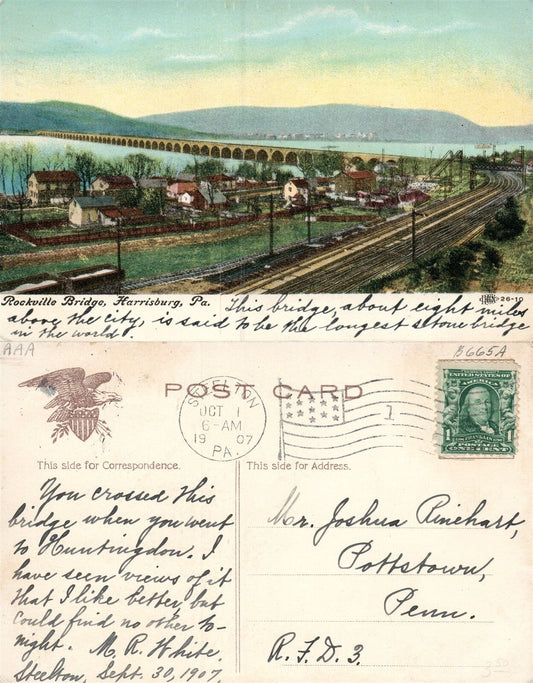 Rockville Bridge, Harrisburg, Pa.
26-10
This bridge, about eight miles
above the city, is said to be the longest stone bridge
in the world.
AAA
B665A
POST CARD
STEELTON
OCT 1
6-AM
1907
PA.
1
UNITED STATES OF AMERICA
1
1
FRANKLIN
ONE CENT
This side for Correspondence.
This side for Address.
You crossed this
bridge when you went
to Huntingdon. I
have seen views of it
that I like better, but
could find no other to-
night. M. R. White.
Steelton, Sept. 30, 1907.
Mr. Joshua Rinehart,
Pottstown,
Penn.
R.F.D. 3.
3.50